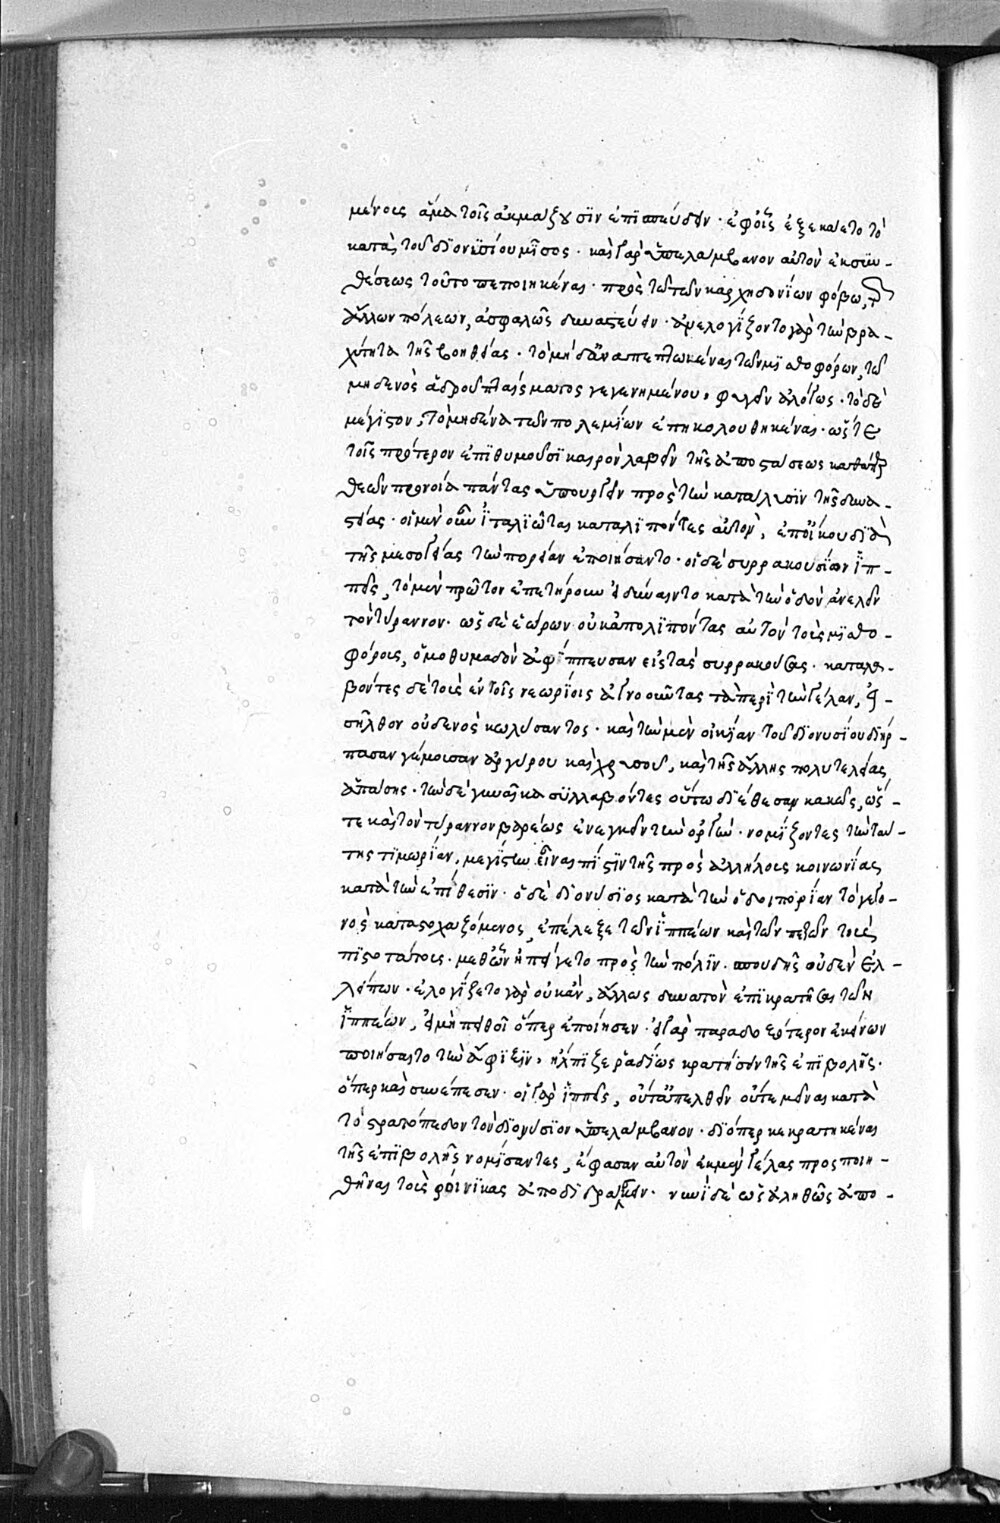 μένοις ἅμα τοῖς ἀκμάζουσιν ἐπισπεύδειν· ἐφοῖς ἐξεκαίετο τὸ
κατὰ τοῦ διονυσίου μῖσος· καὶ γὰρ ὑπελάμβανον αὐτὸν ἐκσυν-
θέσεως τοῦτο πεποιηκέναι· πρὸς τὸ τῶν καρχηδονίων φόβω, τῶν
ἄλλων πόλεων, ἀσφαλῶς δυναστεύειν· ἀνελογίζοντο γὰρ τὴν βρα-
χύτητα τῆς βοηθείας· τὸ μηδένα πεπτωκέναι τῶν μισθοφόρων, τὸ
μηδενὸς ἁδροῦ πταίσματος γεγενημένου, φυγεῖν ἀλόγως· τὸ δὲ
μέγιστον, τὸ μηδένα τῶν πολεμίων ἐπηκολουθηκέναι· ὥστε
τοῖς πρότερον ἐπιθυμοῦσι καιρὸν λαβεῖν τῆς ἀποστάσεως καθάπερ
θεῶν προνοία πάντας ὑπουργεῖν πρὸς τὴν κατάλυσιν τῆς δυνα-
στείας· οἱ μὲν οὖν ἰταλιῶται καταλιπόντες αὐτὸν, ἐποίκου διὰ
τῆς μεσογείας τὴν πορείαν ἐποιήσαντο· οἱ δὲ συρρακουσίων ἱπ-
πεῖς, τὸ μὲν πρῶτον ἐπετήρουν εἰ δύναιντο κατὰ τὴν ὁδὸν ἀνελεῖν
τὸν τύραννον· ὡς δὲ ἑώρων οὐκ ἀπολιπόντας αὐτὸν τοὺς μισθο-
φόρους, ὁμοθυμαδὸν ἀφίππευσαν εἰς τὰς συρρακούσας· καταλα-
βόντες δὲ τοὺς ἐν τοῖς νεωρίοις ἀγνοοῦντας τὰ περὶ τὴν γέλαν, εἰ-
σῆλθον οὐδενὸς κωλύσαντος· καὶ τὴν μὲν οἰκίαν τοῦ διονυσίου διήρ-
πασαν γέμουσαν ἀργύρου καὶ χρυσοῦ, καὶ τῆς ἄλλης πολυτελείας
ἁπάσης· τὴν δὲ γυναῖκα συλλαβόντες οὕτω διέθεσαν κακῶς, ὥσ-
τε καὶ τὸν τύραννον βαρέως ἐνεγκεῖν τὴν ὀργὴν· νομίζοντες τὴν ταύ-
της τιμωρίαν, μεγίστην εἶναι πίστιν τῆς πρὸς ἀλλήλους κοινωνίας
κατὰ τὴν ἐπίθεσιν· ὁ δὲ διονύσιος κατὰ τὴν ὁδοιπορίαν τὸ γεγο-
νὸς καταστοχαζόμενος, ἐπέλεξε τῶν ἱππέων καὶ τῶν πεζῶν τοὺς
πιστοτάτους· μεθὧν ἠπείγετο πρὸς τὴν πόλιν· σπουδῆς οὐδὲν ἐλ-
λείπων· ἐλογίζετο γὰρ οὐκ ἂν, ἄλλως δυνατὸν ἐπικρατῆσαι τῶν
ἱππέων, εἰ μὴ πείθοι ὅπερ ἐποίησεν· εἰ γὰρ παραδοξότερον ἐκείνων
ποιήσαιτο τὴν ἄφιξιν, ἤλπιζε ῥαδίως κρατήσειν τῆς ἐπιβολῆς·
ὅπερ καὶ συνέπεσεν· οἱ γὰρ ἱππεῖς, οὔτ' ἂν ἀπελθεῖν οὔτε μεῖναι κατὰ
τὸ στρατόπεδον τὸν διονύσιον ὑπελάμβανον· διόπερ κεκρατηκέναι
τῆς ἐπιβολῆς νομίσαντες, ἔφασαν αὐτὸν ἐκ μὲν γέλας προσποιη-
θῆναι τοὺς φοίνικας ἀποδιδράσκειν· νυνὶ δὲ ὡς ἀληθῶς ἀπο-